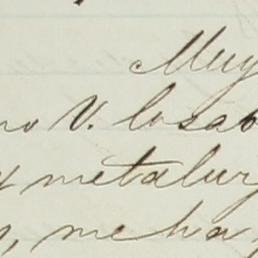 Muy
no V. losab
y metalur
, me ha